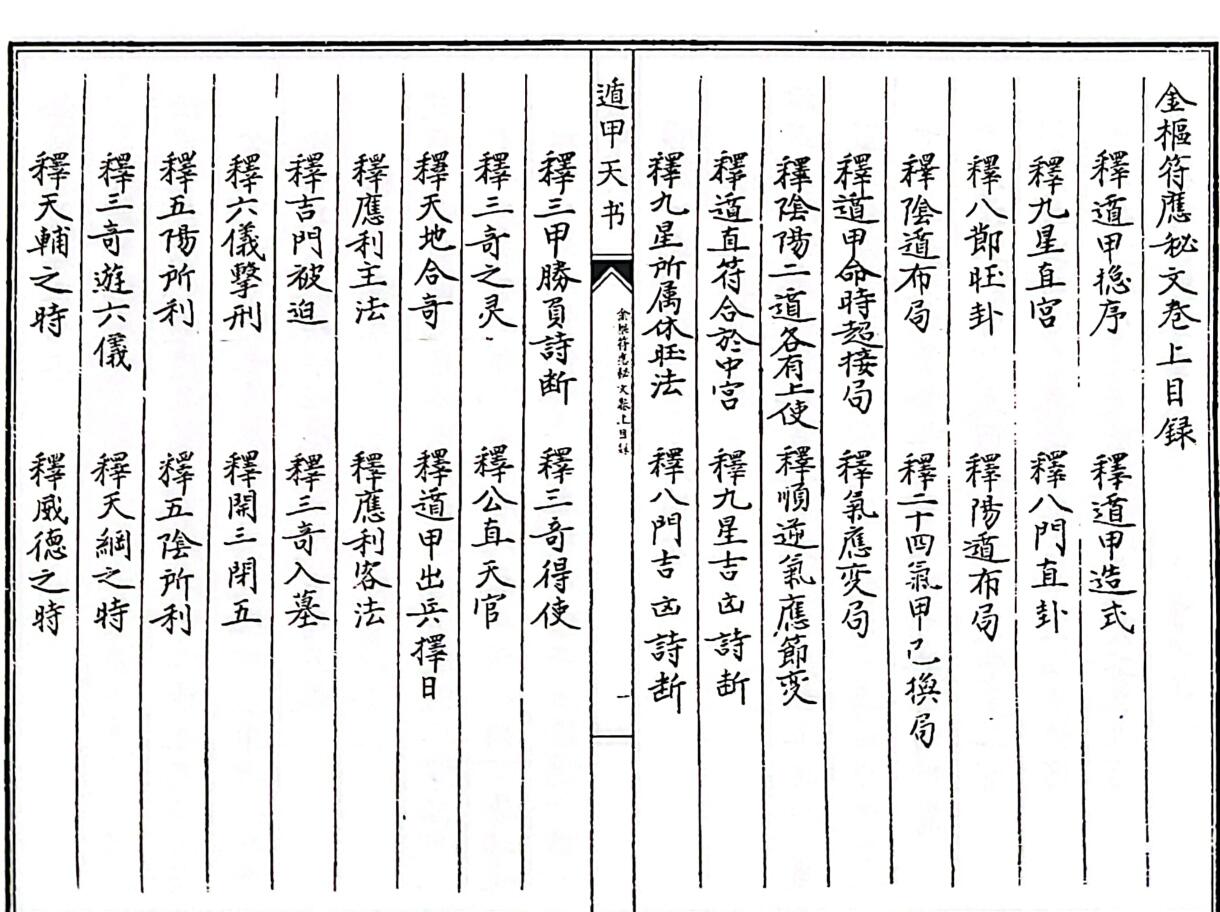 金樞符應秘文卷上目録
釋遁甲摠序 釋遁甲造式
釋九星直宫 釋八門直卦
釋八節旺卦 釋陽遁布局
釋陰遁布局 釋二十四氣甲己換局
釋遁甲命時超接局 釋氣應变局
釋陰陽二遁各有上使 釋順逆氣應節变
釋遁直符合於中宫 釋九星吉凶詩断
釋九星所属休旺法 釋八門吉凶詩断
遁甲天书
金樞符應秘文卷上目錄
一
釋三甲勝負詩断 釋三奇得使
釋三奇之灵 釋公直天官
釋天地合奇 釋遁甲出兵擇日
釋應利主法 釋應利客法
釋吉門被迫 釋三奇入墓
釋六儀擊刑 釋開三閉五
釋五陽所利 釋五陰所利
釋三奇遊六儀 釋天綱之時
釋天輔之時 釋威德之時